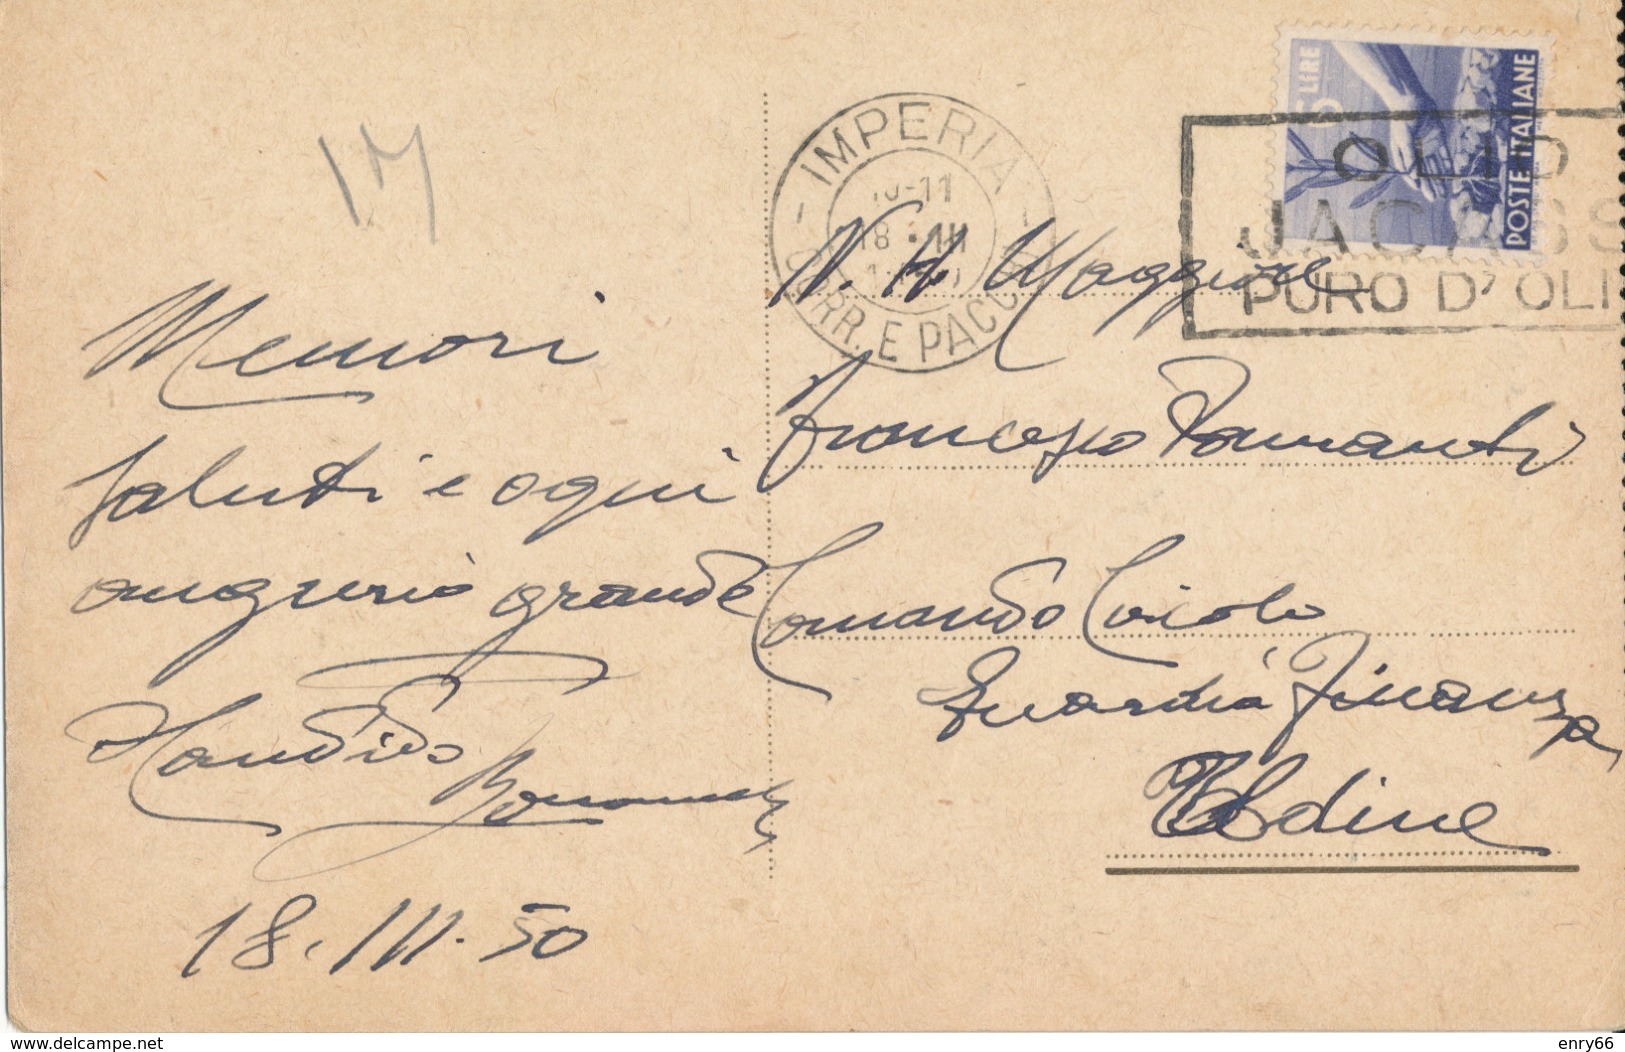 17
Memori
saluti e ogni
augurio grande
18.III.50
IMPERIA
10-11
18.III
CORR. E PACCHI
6 LIRE
POSTE ITALIANE
OLIO
JACASS
PURO D'OLI
N. H. Maggiore
Francesco
Comando Circolo
Guardia Finanza
Udine
www.delcampe.net
enry66